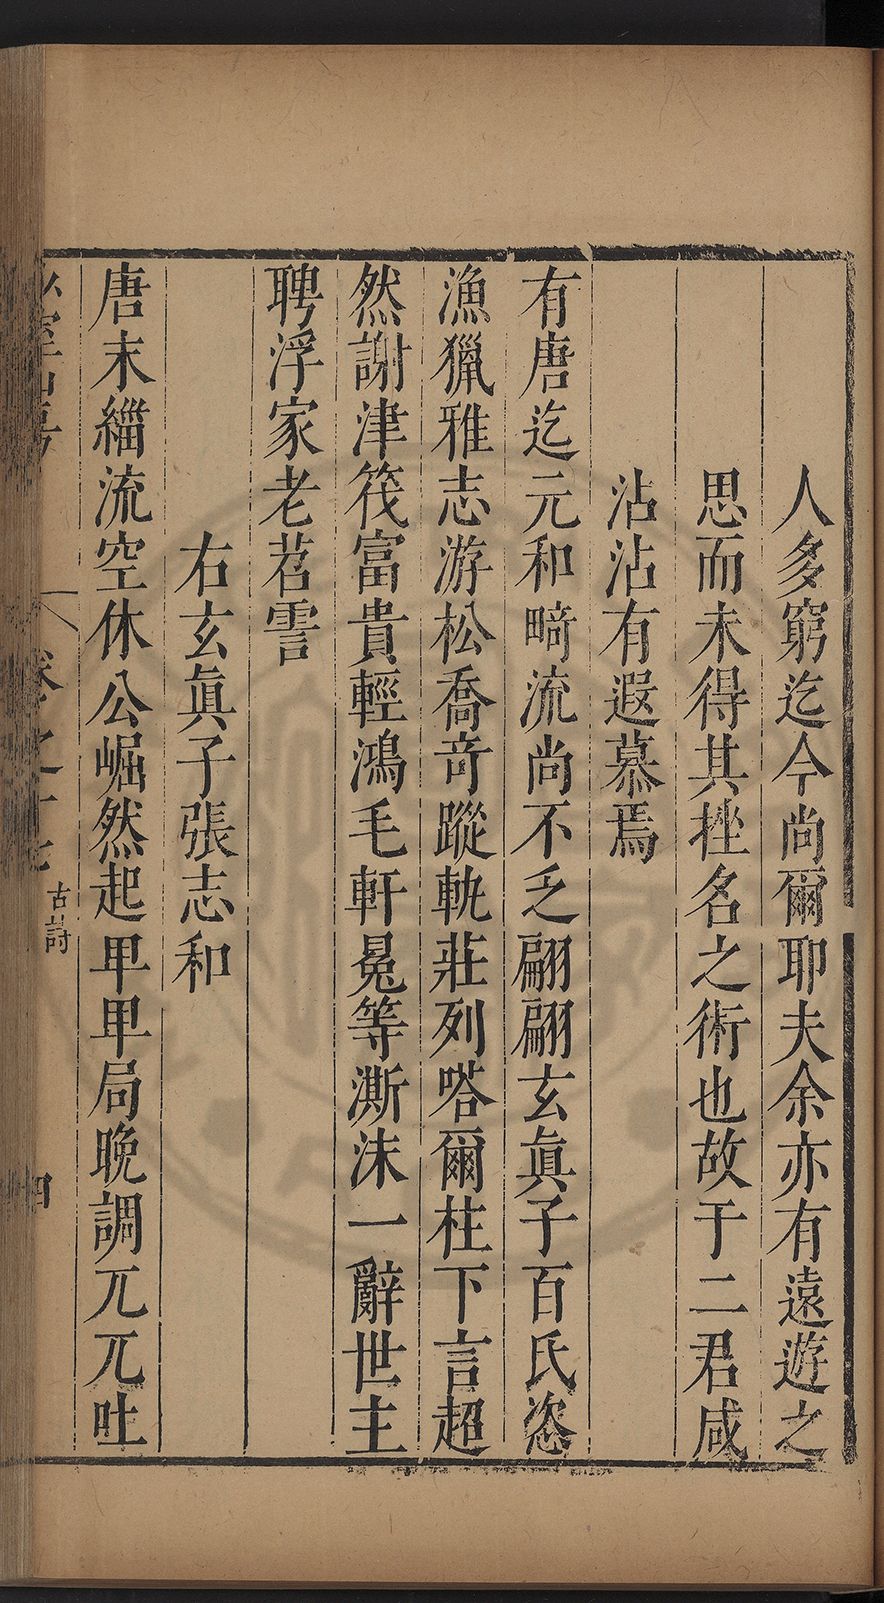 人多窮迄今尚爾耶夫余亦有遠遊之
思而未得其挫名之術也故于二君咸
沾沾有遐慕焉
有唐迄元和畸流尚不乏翩翩玄眞子百氏恣
漁獵雅志游松喬奇蹤軌莊列嗒爾柱下言超
然謝津筏富貴輕鴻毛軒冕等澌沫一辭世主
聘浮家老苕霅
右玄眞子張志和
唐末緇流空休公崛然起卑卑局晚調兀兀吐
卷之十七
古詩
四